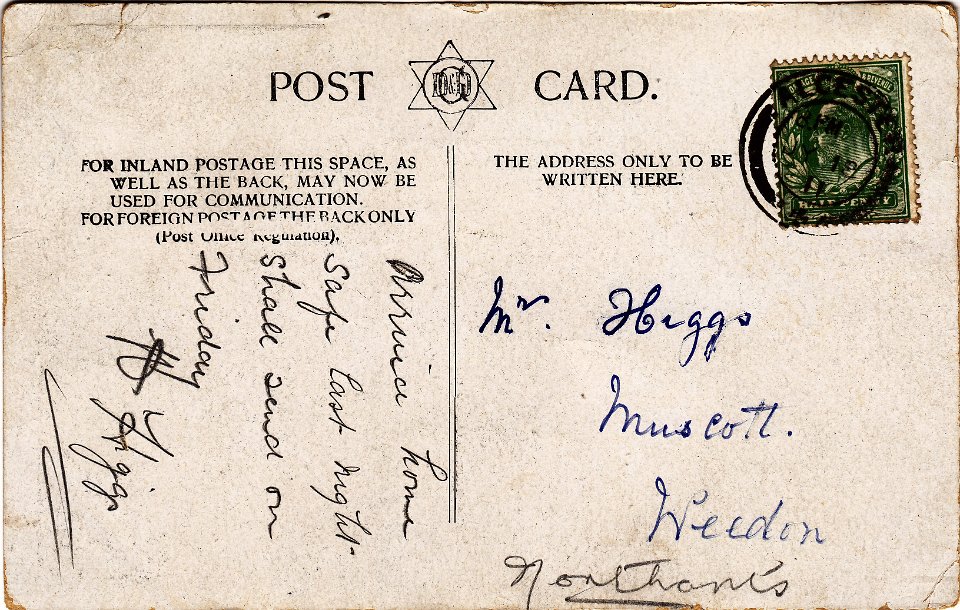 POST CARD.
FOR INLAND POSTAGE THIS SPACE, AS
WELL AS THE BACK, MAY NOW BE
USED FOR COMMUNICATION.
FOR FOREIGN POSTAGE THE BACK ONLY
(Post Office Regulation).
THE ADDRESS ONLY TO BE
WRITTEN HERE.
ALCESTER
HALFPENNY
Arrive home
Safe last night.
Shall send on
Friday
H Higgs
Mr. Higgs
Muscott.
Weedon
Northants